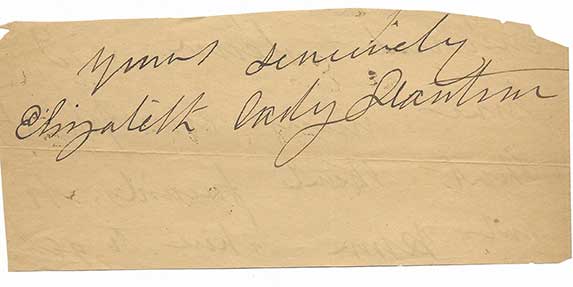 Yours sincerely
Elizabeth Cady Stanton